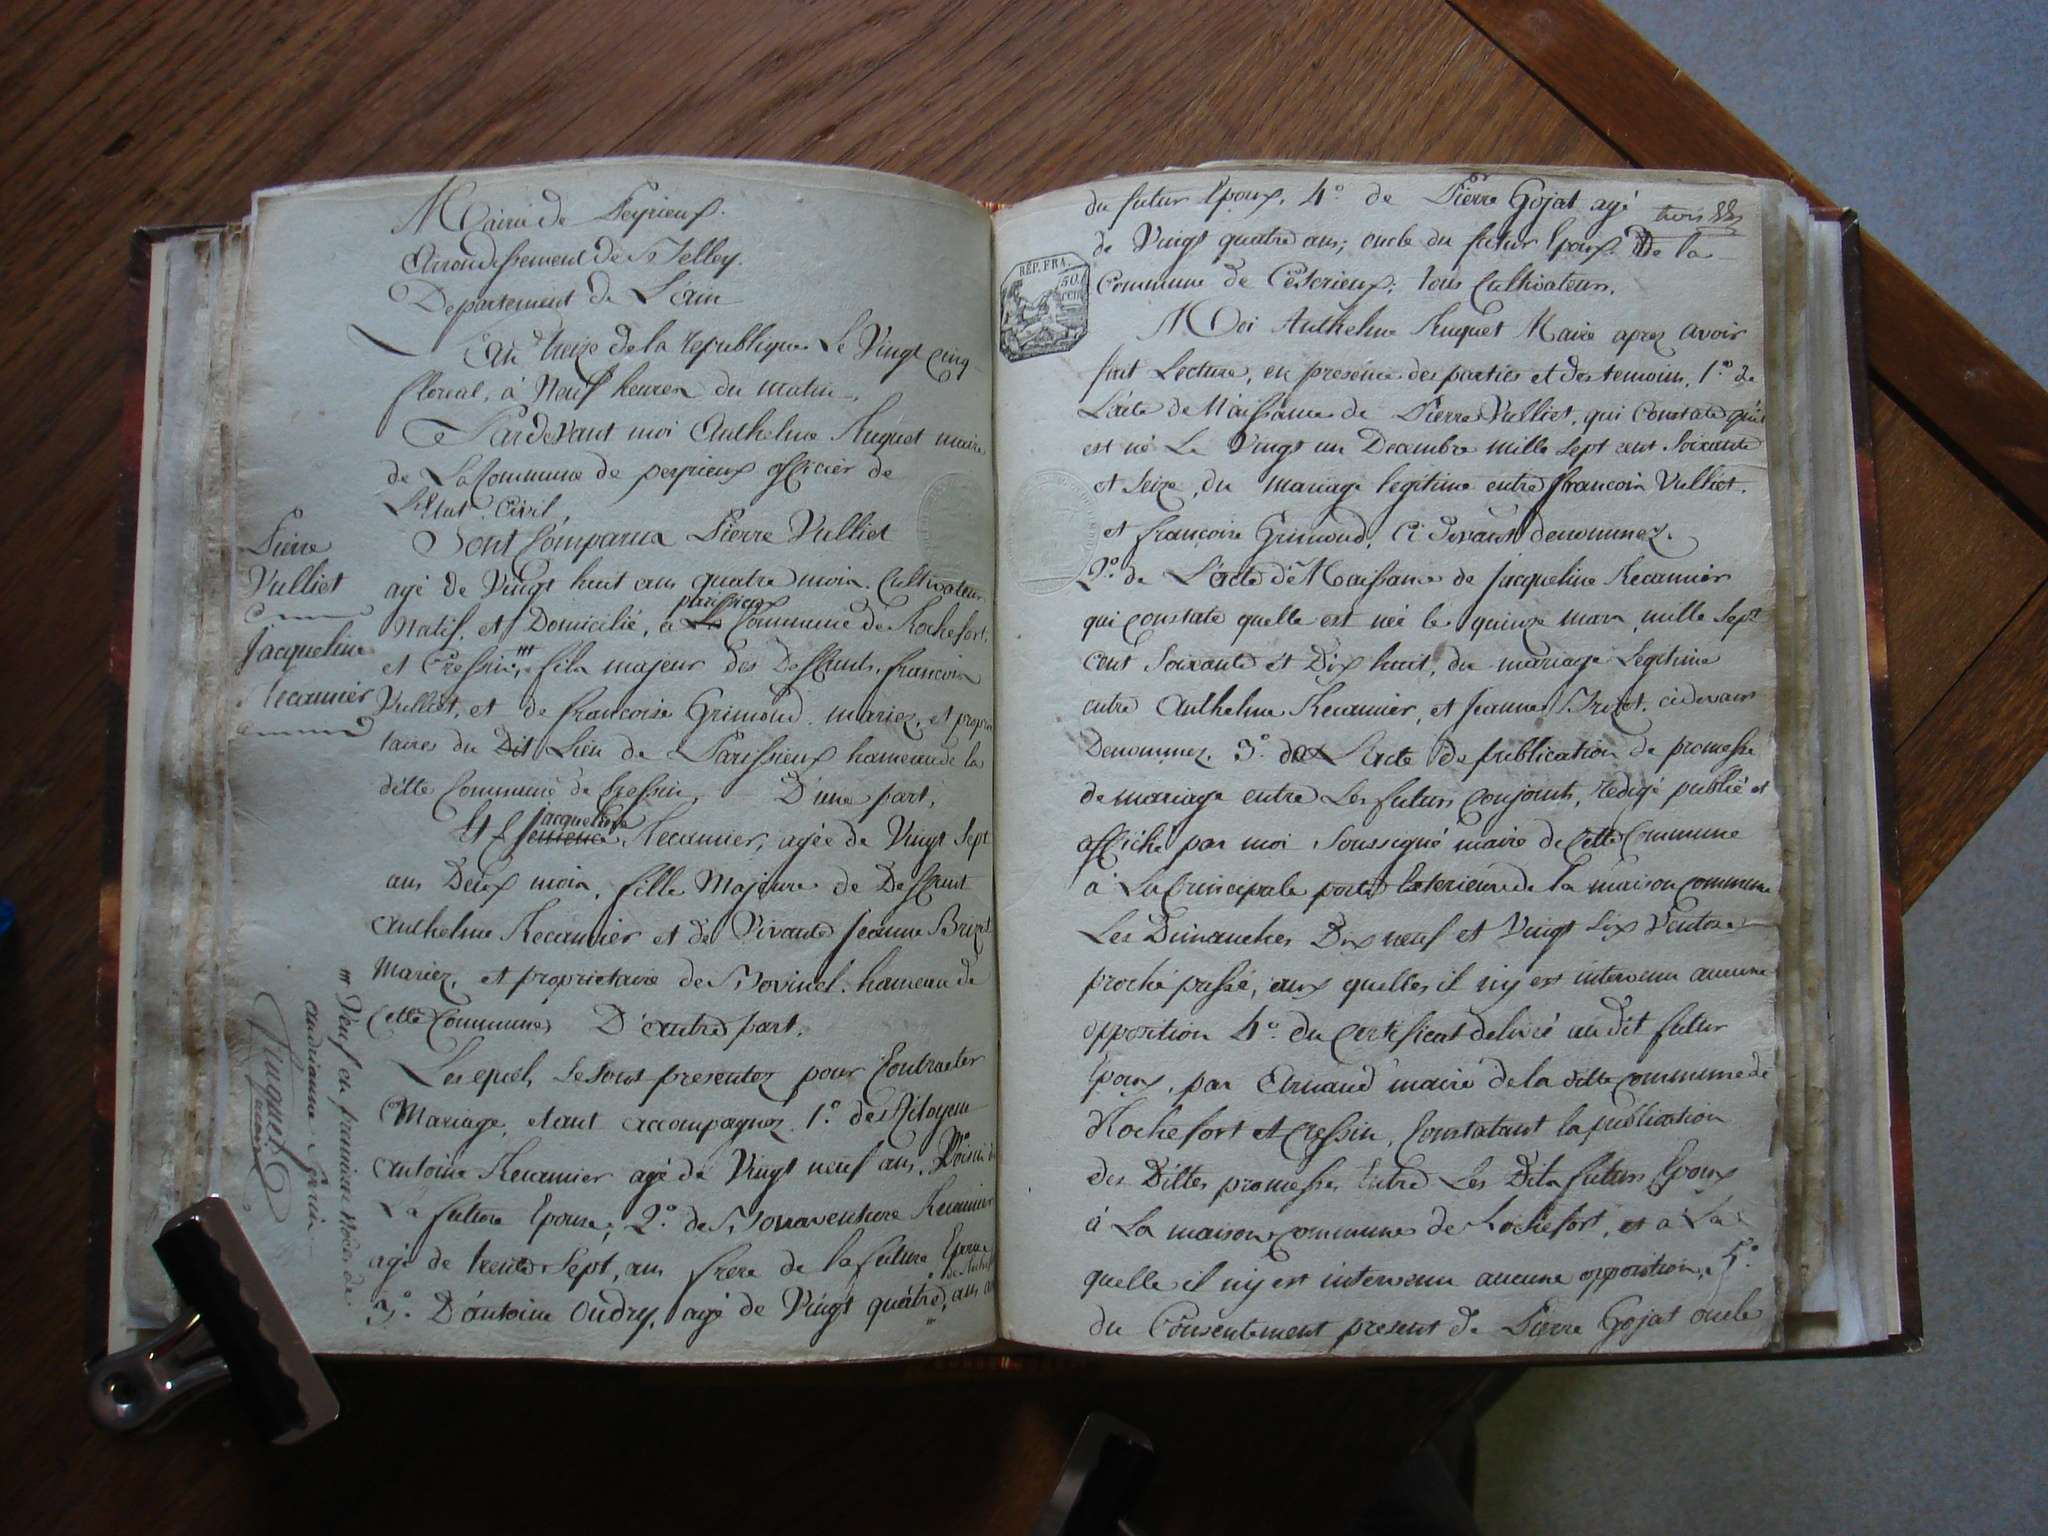 Mairie de Peyrieux.
Arrondissement de Belley.
Departement de L'ain
L'an treize de la republique Le Vingt cinq
floreal, à Neuf heures du matin,
Pardevant moi Anthelme Huguet maire
de La Commune de peyrieux officier de
L'Etat Civil
Sont Comparus Pierre Vulliet
agé de Vingt huit ans quatre mois. Cultivateur
parissieux
Natif, et Domicilié, a Commune de Rochefort,
et Cressin, fils majeur des Deffunts, francois
Vulliet, et de francoise Grimond mariez, et proprie
taires du Dit Lieu de Parissieux hameau de la
ditte Commune de Cressin, D'une part,
jacqueline
Et Recamier, agée de Vingt Sept
ans Deux mois, fille Majeure de Deffunt
Anthelme Recamier et de Vivante jeanne Brizet
Mariez, et proprietaire de hameau de
Cette Commune D'autre part,
Lesquels, se sont presentez pour Contracter
Mariage, etant accompagnez 1.º des Citoyens
antoine Recamier agé de Vingt neuf ans, Voisin de
La future Epouse, 2.º de Bonaventure Recamier
agé de trente Sept, ans frere de la future Epouse
3.º D'antoine Oudry, agé de Vingt quatre, ans
Pierre
Vulliet
Jacqueline
Recamier
Veuf en premieres Noces de
andrianne
Huguet
maire
du futur Epoux, 4.º de Pierre Gojat agé
de Vingt quatre ans; oncle du futur Epoux. De la
Commune de tous Cultivateurs.
RÉP. FRA.
50
Moi Anthelme Huguet Maire aprez avoir
fait Lecture, en presence des parties et des temoins, 1.º de
L'acte de Naissance de Pierre Vulliet, qui Constate qu'il
est né Le Vingt un Decembre mille Sept cent Soixante
et Seize, du mariage legitime entre francois Vulliet.
et francoise Grimond, Ci Devant denommez.
2.º de L'acte de Naissance de jacqueline Recamier
qui constate quelle est née le quinze mars, mille Sept
cent Soixante et Dix huit, du mariage Legitime
entre Anthelme Recamier, et jeanne Brizet. cidevant
Denommez. 3.º de L'acte de publication de promesse
de mariage entre Les futurs conjoints, redigé publié et
affiché par moi Soussigné maire de Cette Commune
à La principale porte Exterieure de la maison commune
Les Dimanches Dix neuf et Vingt Six Ventose
proche passé, aux quelles il n'y est intervenu aucune
opposition 4.º du certificat delivré audit futur
Epoux, par maire de la ditte commune de
Rochefort et Cressin, Constatant la publication
des Dittes promesses Entre Les Dits futurs Epoux
à La maison commune de Rochefort, et à La
quelle il n'y est intervenu aucune opposition, 5.º
du Consentement present de Pierre Gojat oncle